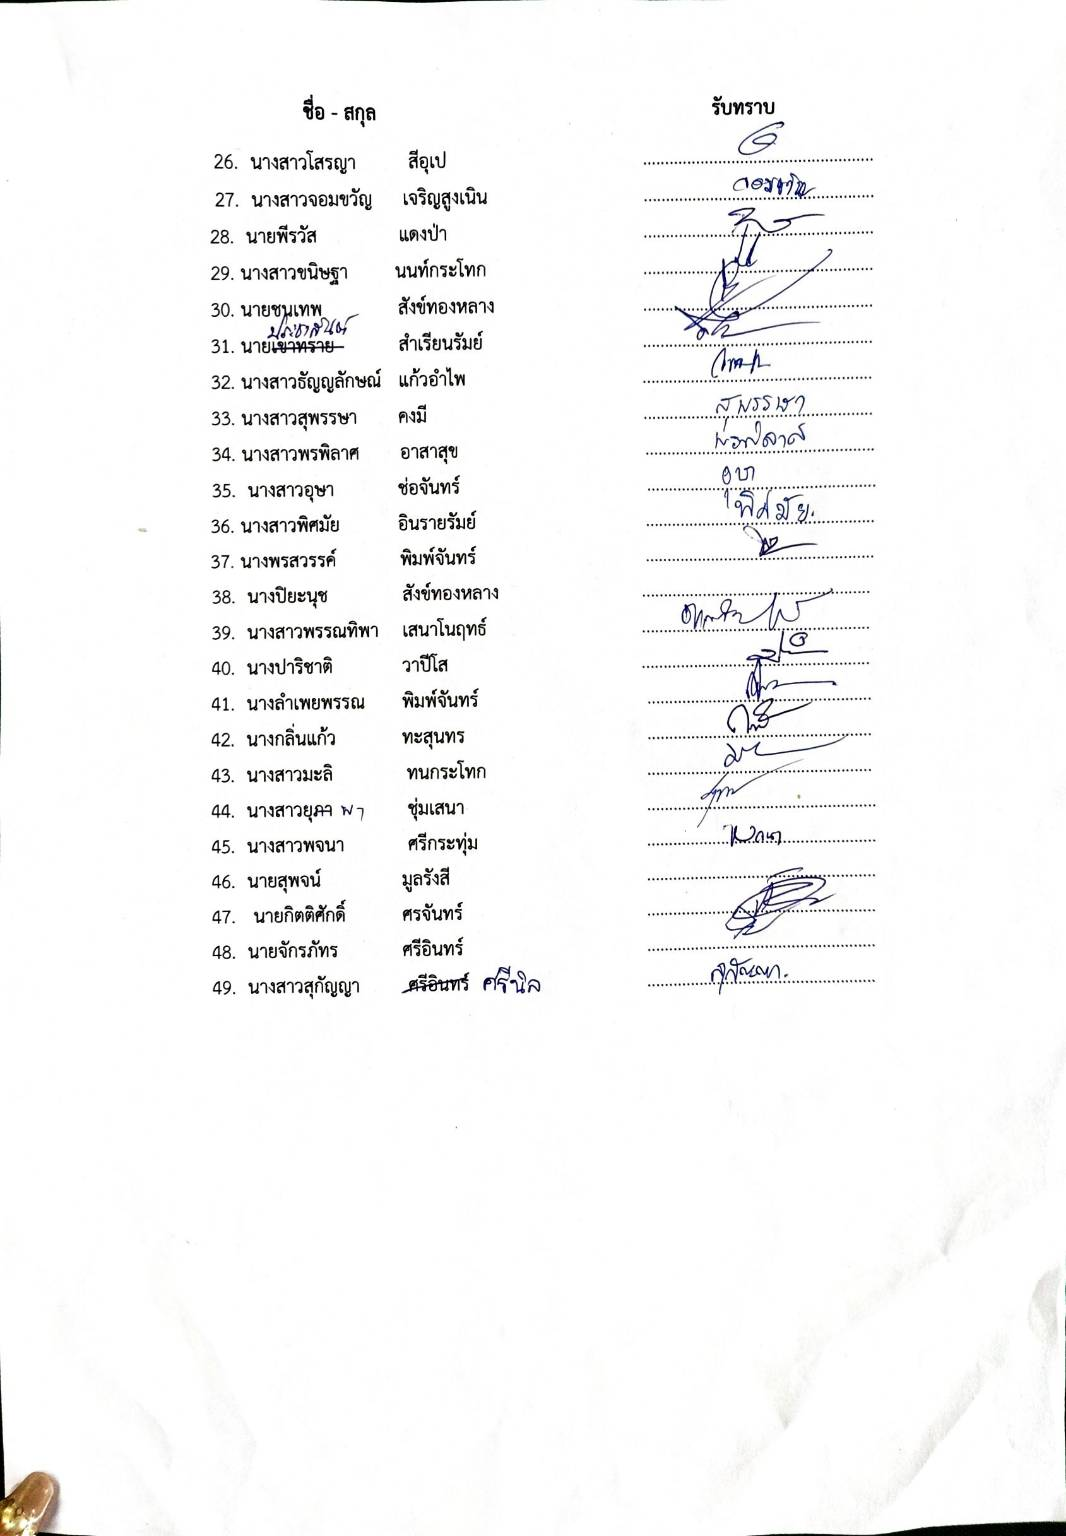 ชื่อ - สกุล รับทราบ
26. นางสาวโสรญา สีอุเป
27. นางสาวจอมขวัญ เจริญสูงเนิน จอมขวัญ
28. นายพีรวัส แดงป่า
29. นางสาวขนิษฐา นนท์กระโทก
30. นายชนเทพ สังข์ทองหลาง
ประชาสันต์
31. นายเขาทราย สำเรียนรัมย์
32. นางสาวธัญญลักษณ์ แก้วอำไพ
33. นางสาวสุพรรษา คงมี สุพรรษา
34. นางสาวพรพิลาศ อาสาสุข พรพิลาศ
35. นางสาวอุษา ช่อจันทร์ อุษา
36. นางสาวพิศมัย อินรายรัมย์ พิศมัย.
37. นางพรสวรรค์ พิมพ์จันทร์
38. นางปิยะนุช สังข์ทองหลาง
39. นางสาวพรรณทิพา เสนาโนฤทธ์
40. นางปาริชาติ วาปีโส
41. นางลำเพยพรรณ พิมพ์จันทร์
42. นางกลิ่นแก้ว ทะสุนทร
43. นางสาวมะลิ ทนกระโทก
44. นางสาวยุภา พา ชุ่มเสนา
45. นางสาวพจนา ศรีกระทุ่ม พจนา
46. นายสุพจน์ มูลรังสี
47. นายกิตติศักดิ์ ศรจันทร์
48. นายจักรภัทร ศรีอินทร์
49. นางสาวสุกัญญา ศรีอินทร์ ศรีนิล สุกัญญา.